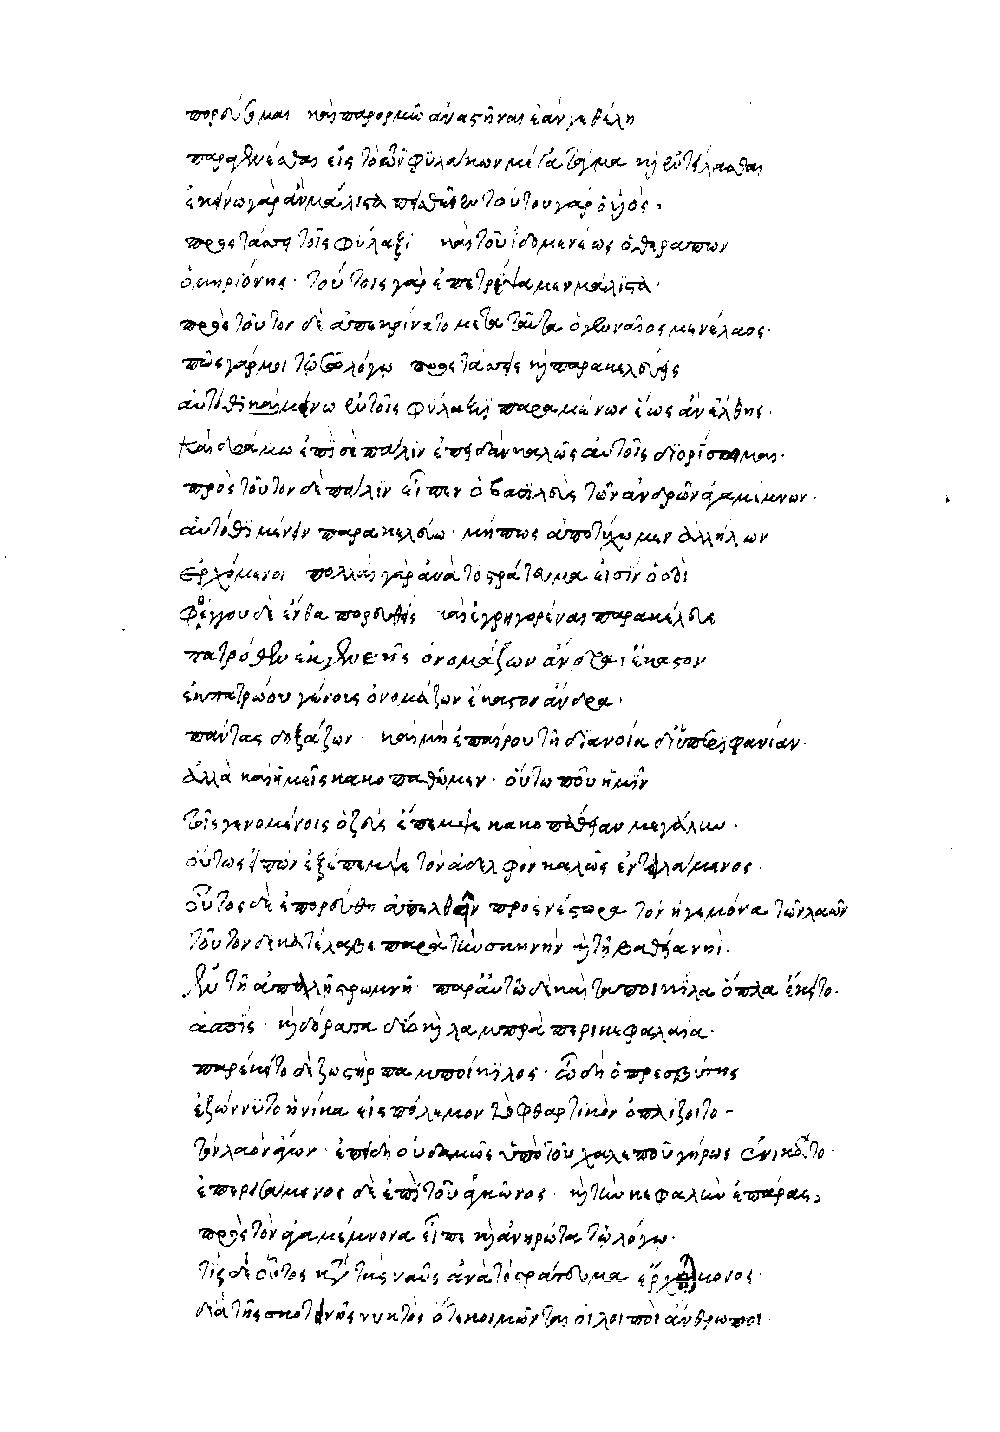 πορεύσομαι καὶ παρορμῶ ἀναστῆναι ἐάν γε θέλῃ
παραγενέσθαι εἰς τὸ τῶν φυλάκων μέγα τάγμα κỳ ἐντείλασθαι
ἐκείνω γὰρ ἂν μάλιστα πεισθεῖεν τούτου γὰρ ὁ υἱός.
προστάσσει τοῖς φύλαξι καὶ τοῦ ἰδομενέως ὁ θεράπων
ὁ μηριόνης· τούτοις γὰρ ἐπετρέψαμεν μάλιστα·
πρὸς τοῦτον δὲ ἀπεκρίνατο μετὰ ταῦτα ὁ γενναῖος μενέλαος·
πῶς γάρ μοι τῶ σῶ λόγω προστάσσεις κỳ παρακελεύεις
αὐτόθι μένω ἐν τοῖς φύλαξι παραμένων ἕως ἂν ἔλθης·
καὶ δράμω ἐπὶ σὲ πάλιν ἐπειδὰν καλῶς αὐτοῖς διορίσωμαι·
πρὸς τοῦτον δὲ πάλιν εἶπεν ὁ βασιλεὺς τῶν ἀνδρῶν ἀγαμέμνων·
αὐτόθι μένειν παρακελεύω· μήπως ἀποτύχωμεν ἀλλήλων
ἐρχόμενοι πολλαὶ γὰρ ἀνὰ τὸ στράτευμα εἰσὶν ὁδοὶ
φθέγγου δὲ ἔνθα πορευθῆς καὶ ἐγρηγορέναι παρακέλευε
πατρόθεν ἐκ γενεῆς ὀνομάζων ἄνδρα ἕκαστον
ἐκ πατρώου γένους ὀνομάζων ἕκαστον ἄνδρα·
πάντας δοξάζων· καὶ μὴ ἐπαίρου τῆ διανοία δι ὑπερηφανίαν·
ἀλλὰ καὶ ἡμεῖς κακοπαθῶμεν· οὕτω που ἡμῖν
τοῖς γενομένοις ὁ ζεὺς ἔπεμψε κακοπάθειαν μεγάλην·
οὕτως εἰπὼν ἐξέπεμψε τὸν ἀδελφὸν καλῶς ἐντειλάμενος·
οὗτος δὲ ἐπορεύθη ἀπελθεῖν πρὸς νέστορα τὸν ἡγεμόνα τῶν λαῶν
τοῦτον δὲ κατέλαβε παρὰ τὴν σκηνὴν κỳ τῆ βαθεία νηὶ·
ἐν τῆ ἁπαλῆ στρωμνῆ· παρ αὐτῶ δὲ καὶ τὰ ποικίλα ὅπλα ἔκειτο·
ἀσπὶς· κỳ δόρατα δύο κỳ λαμπρὰ περικεφαλαία·
παρέκειτο δὲ ζωστὴρ παμποίκιλος· ὧ δὴ ὁ πρεσβύτης
ἐζώννυτο ἡνίκα εἰς πόλεμον τὸν φθαρτικὸν ὁπλίζοιτο -
τὸν λαὸν ἄγων· ἐπειδὴ οὐδαμῶς ὑπὸ τοῦ χαλεποῦ γήρως ἐνικᾶτο·
ἐπερεισάμενος δὲ ἐπὶ τοῦ ἀγκῶνος· κỳ τὴν κεφαλὴν ἐπάρας,
πρὸς τὸν ἀγαμέμνονα εἶπε κỳ ἀνηρώτα τῶ λόγω·
τίς δὲ οὗτος κατὰ τὰς ναῦς ἀνὰ τὸ στράτευμα ἐρχόμενος·
διὰ τῆς σκοτεινῆς νυκτὸς ὅτε κοιμῶνται οἱ λοιποὶ ἄνθρωποι·